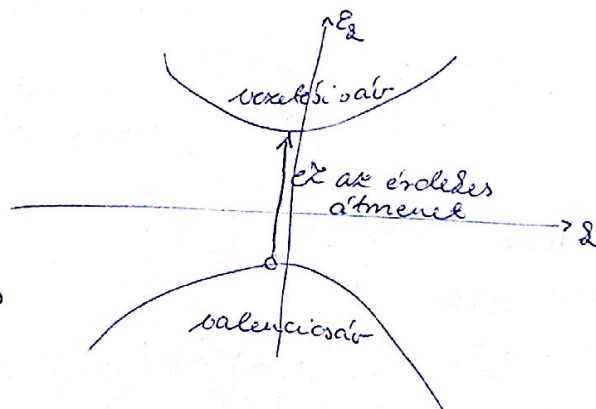 ε_k
vezetési sáv
ez az érdekes
átmenet
k
valenciasáv